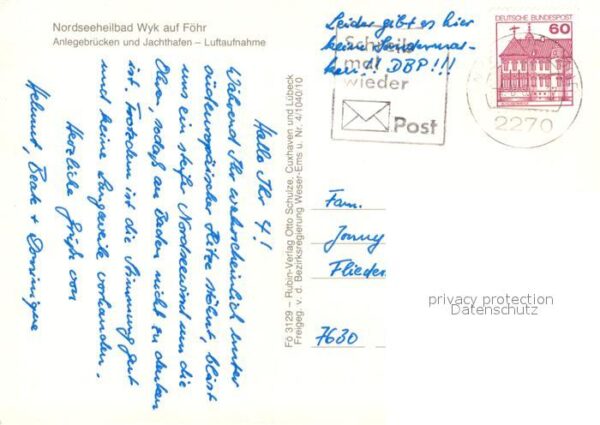 Nordseeheilbad Wyk auf Föhr
Anlegebrücken und Jachthafen – Luftaufnahme
Hallo Ihr 4!
Während Ihr wahrscheinlich unter
südeuropäischer Hitze stöhnt, bläst
uns ein steifer Nordseewind um die
Ohren, sodaß an Baden nicht zu denken
ist. Trotzdem ist die Stimmung gut
und keine Langeweile vorhanden.
Herzliche Grüße von
Helmut, Beate + Dominique
Fö 3129 – Rubin-Verlag Otto Schulze, Cuxhaven und Lübeck
Freigeg. v. d. Bezirksregierung Weser-Ems u. Nr. 4/1040/10
Leider gibt es hier
keine Sondermar-
ken!! DBP!!!
Schreib
mal
wieder
Post
DEUTSCHE BUNDESPOST
60
2270
Fam.
Jonny
Flieder
7630
privacy protection
Datenschutz